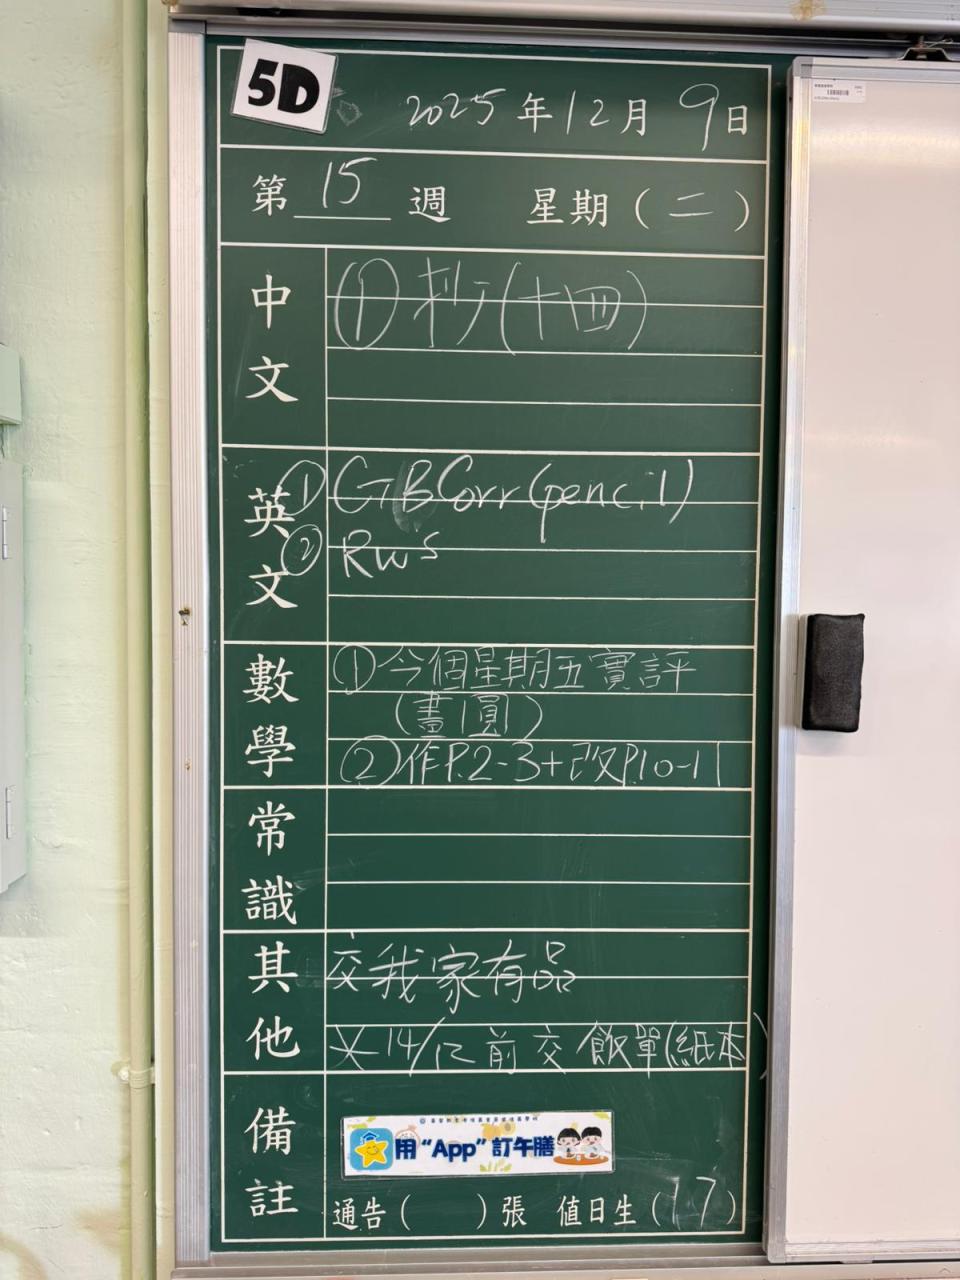 5D
2025年12月9日
第15週 星期(二)
中文
① 抄(十四)
英文
① GB Corr (pencil)
② RWS
數學
① 今個星期五實評
(畫1圓)
② 作P.2-3+改P.10-11
常識
其他
交我家有品
※14/12前交飯單(紙本)
備註
用“App”訂午膳
通告( )張 值日生(17)